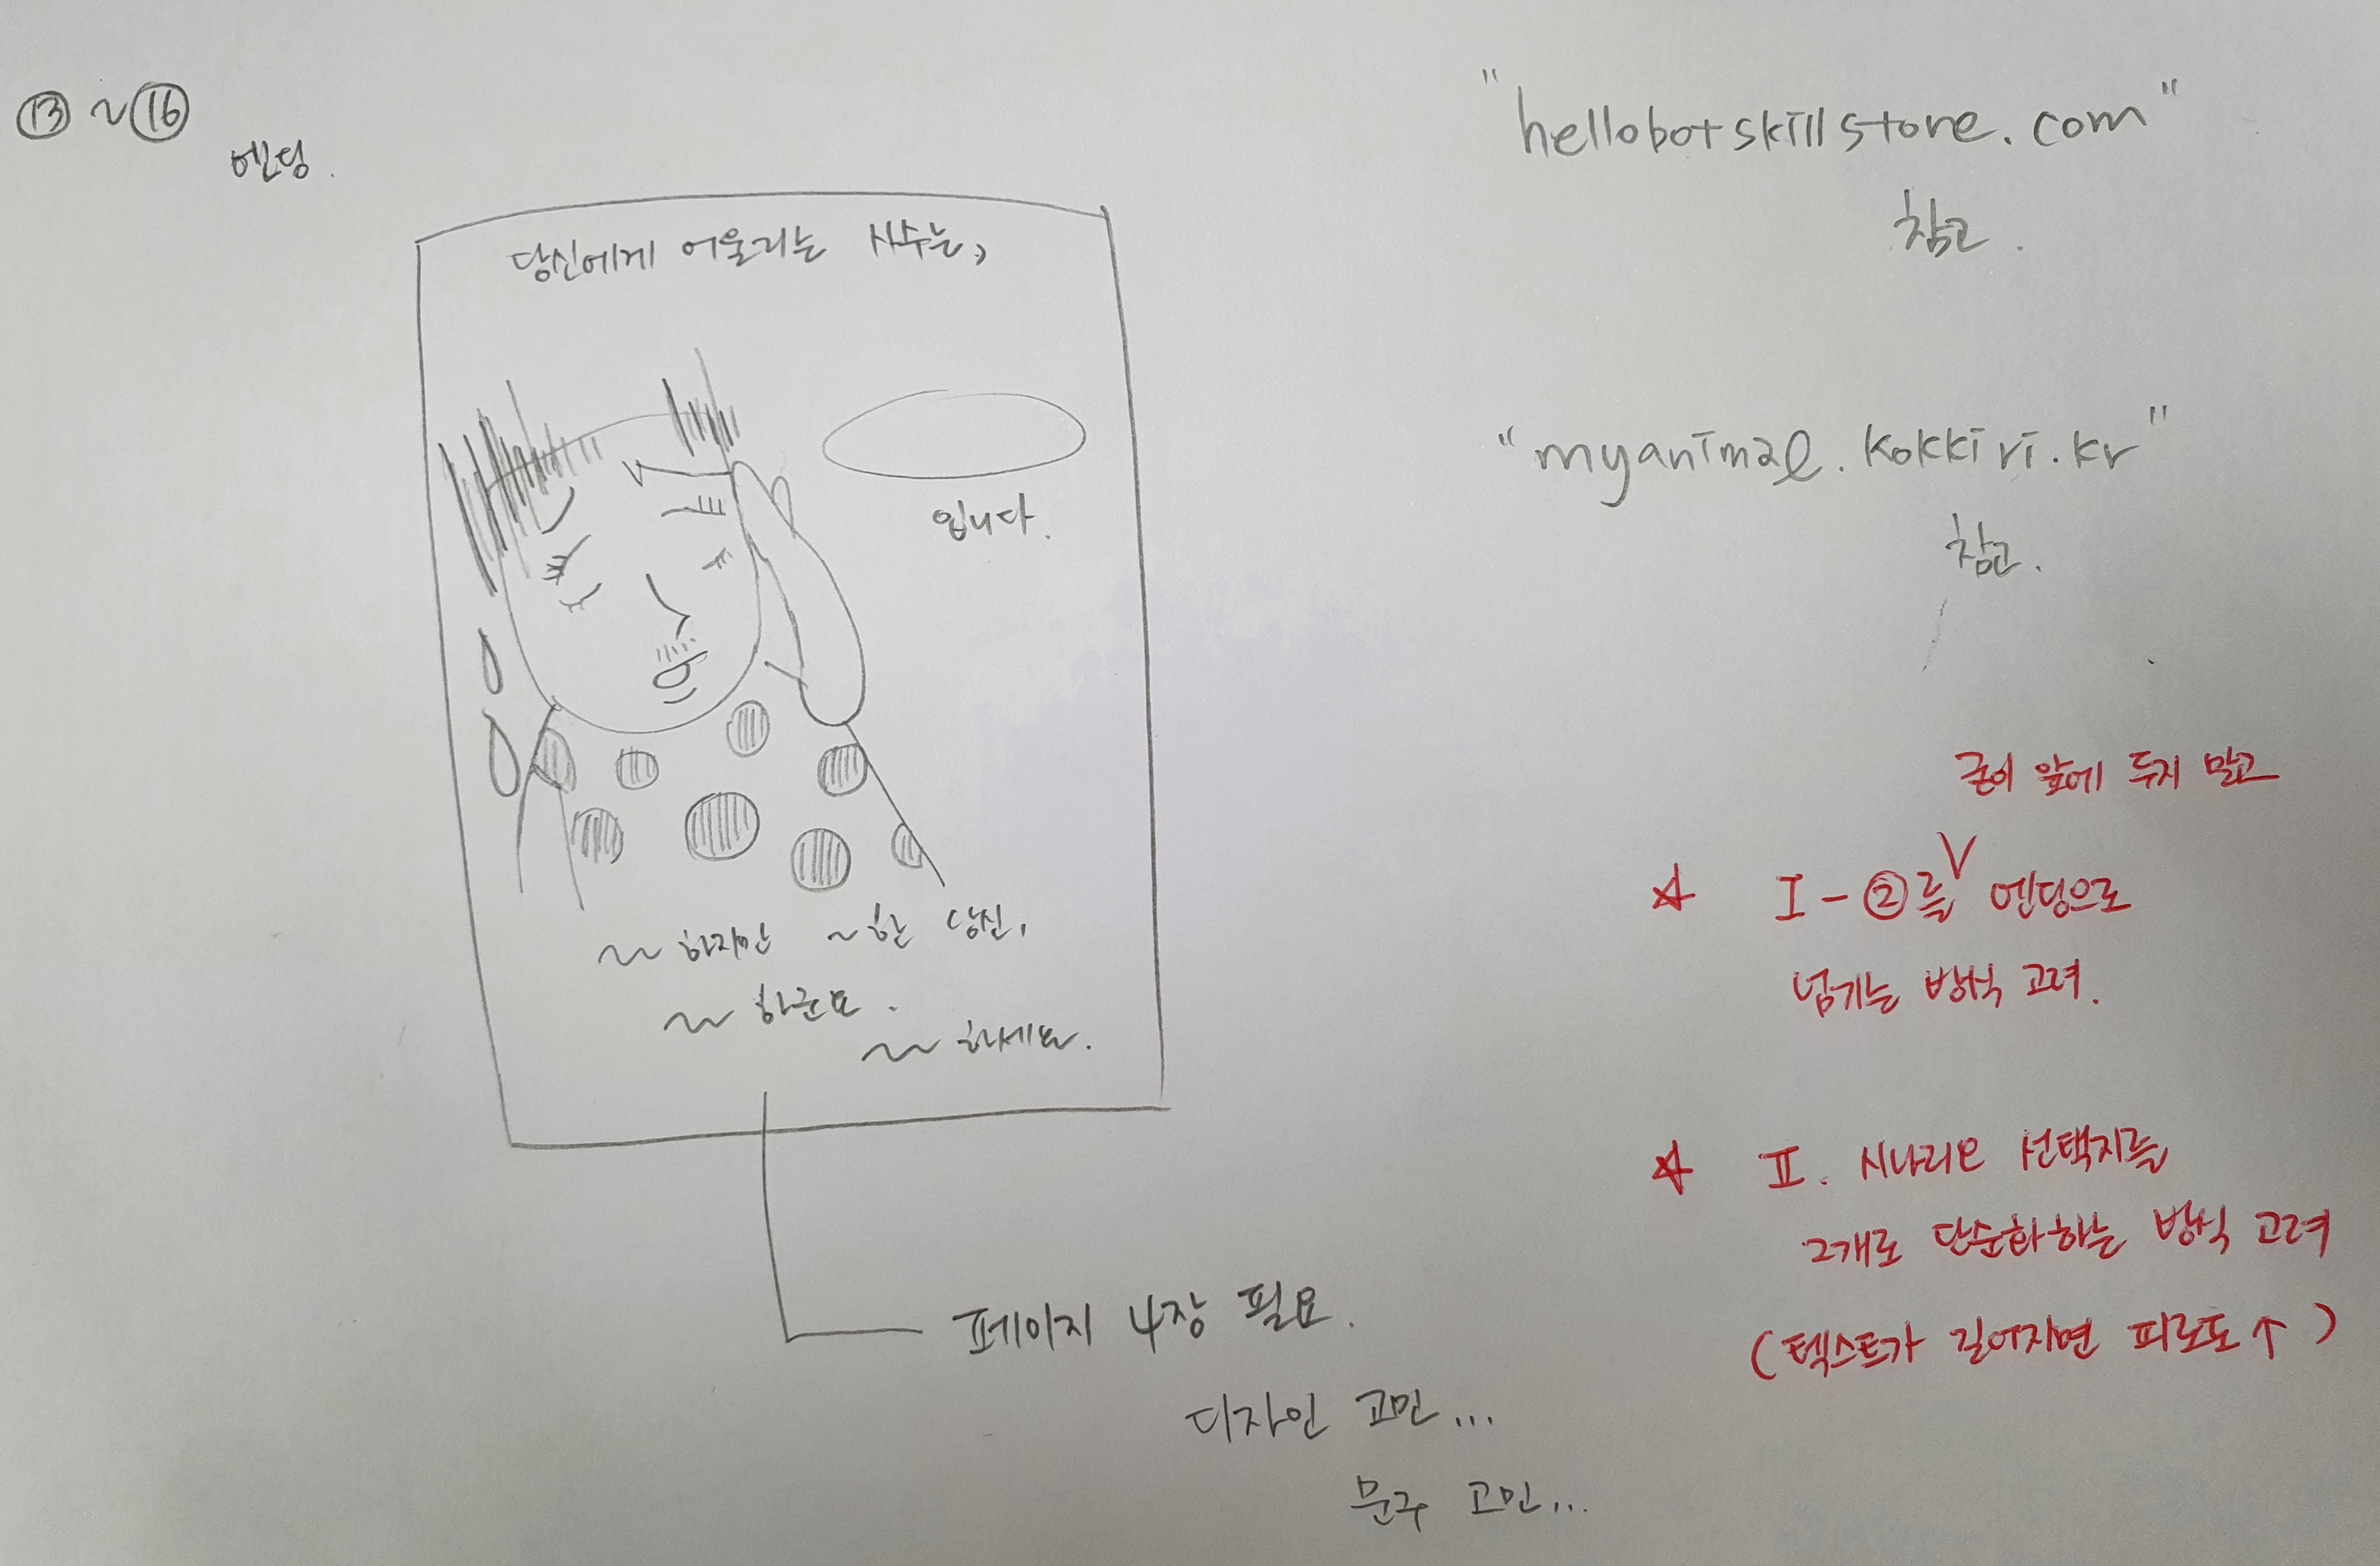 ⑬ ~ ⑯
엔딩.
당신에게 어울리는 사수는,
입니다.
~~ 하지만 ~한 당신,
~~ 하군요.
~~ 하세요.
페이지 4장 필요.
디자인 고민...
문구 고민...
"hellobotskillstore.com"
참고.
"myanimal.kokkiri.kr"
참고.
굳이 앞에 두지 말고
☆ Ⅰ-②를 ∨ 엔딩으로
넘기는 방식 고려.
☆ Ⅱ. 시나리오 선택지를
2개로 단순화하는 방식 고려
(텍스트가 길어지면 피로도↑)